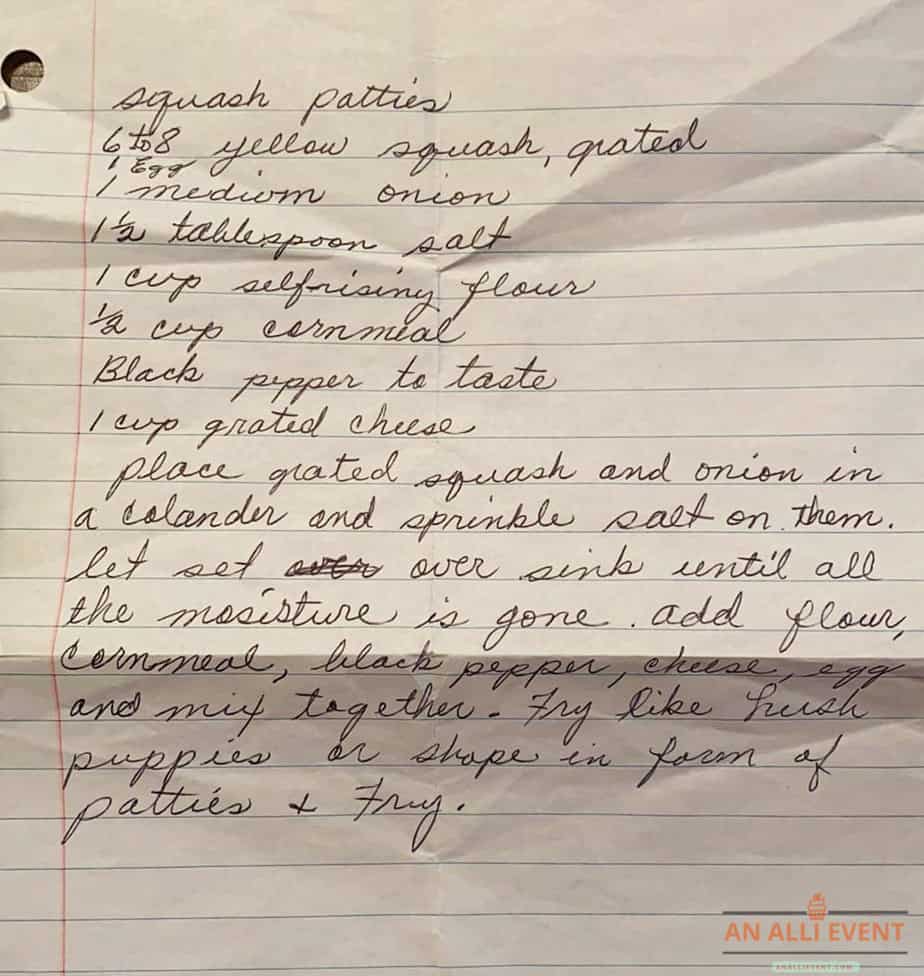 squash patties
6 to 8 yellow squash, grated
1 Egg
1 medium onion
1 1/2 tablespoon salt
1 cup selfrising flour
1/2 cup cornmeal
Black pepper to taste
1 cup grated cheese
place grated squash and onion in
a colander and sprinkle salt on them.
let set over over sink until all
the mosisture is gone. add flour,
cornmeal, black pepper, cheese, egg
and mix together. Fry like hush
puppies or shape in form of
patties & Fry.
AN ALLI EVENT
ANALLIEVENT.COM